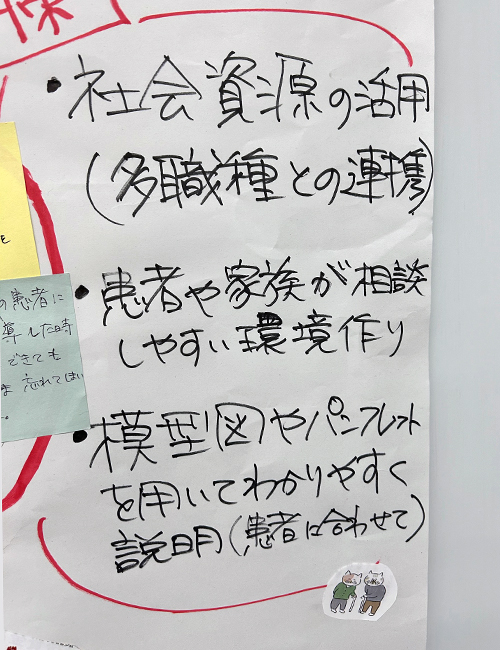 ・社会資源の活用
(多職種との連携)
・患者や家族が相談
しやすい環境作り
・模型図やパンフレット
を用いてわかりやすく
説明(患者に合わせて)
の患者に
導した時
できても
忘れてしまい